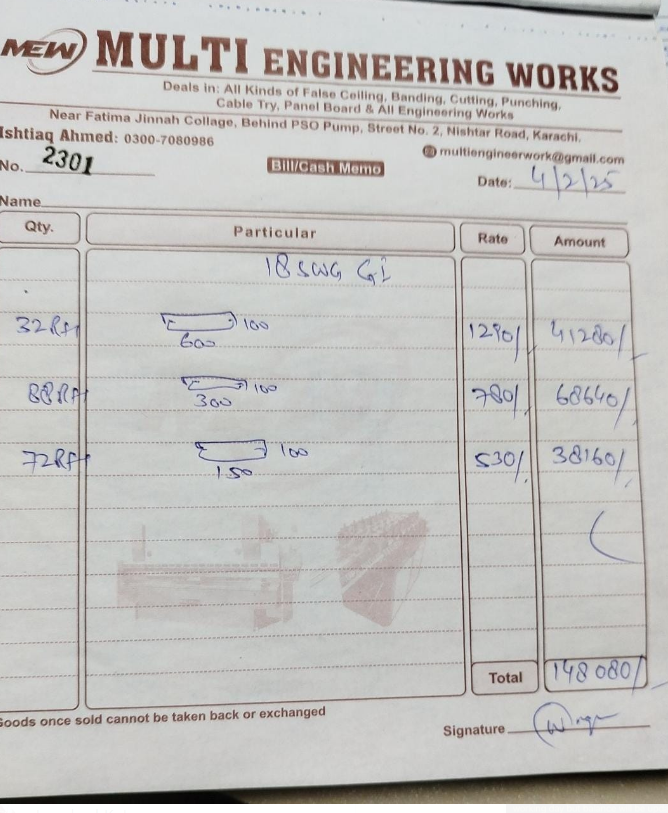 MEW MULTI ENGINEERING WORKS
Deals in: All Kinds of False Ceiling, Banding, Cutting, Punching,
Cable Try, Panel Board & All Engineering Works
Near Fatima Jinnah Collage, Behind PSO Pump, Street No. 2, Nishtar Road, Karachi.
Ishtiaq Ahmed: 0300-7080986
multiengineerwork@gmail.com
No. 2301
Bill/Cash Memo
Date: 4/2/25
Name
Qty. Particular Rate Amount
18 SWG GI
32 Rft 100 1290/ 41280/
600
88 Rft 100 780/ 68640/
300
72 Rft 100 530/ 38160/
150
Total 148080/
Goods once sold cannot be taken back or exchanged
Signature